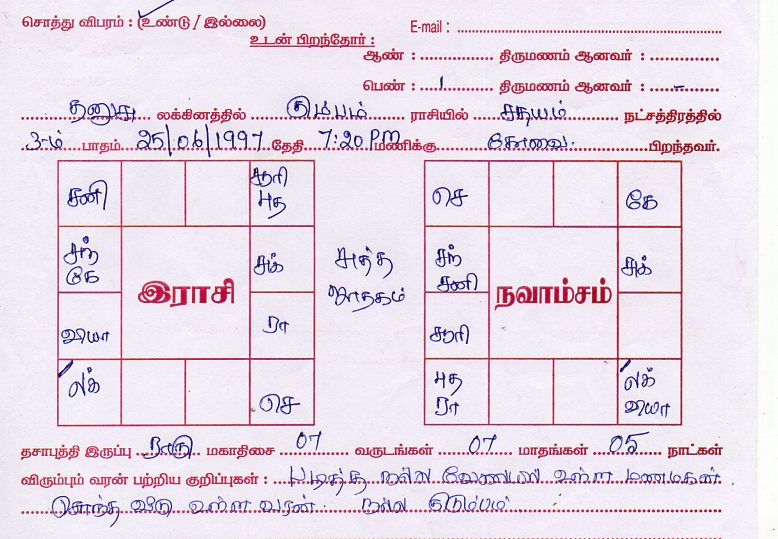 சொத்து விபரம் : (உண்டு / இல்லை) E-mail :
உடன் பிறந்தோர் :
ஆண் : திருமணம் ஆனவர் :
பெண் : 1 திருமணம் ஆனவர் : -
தனுசு லக்கினத்தில் கும்பம் ராசியில் சதயம் நட்சத்திரத்தில்
3-ம் பாதம் 25/06/1997 தேதி 7:20 PM மணிக்கு கோவை. பிறந்தவர்.
சனி சூரி புத
சந் கே இராசி சுக்
வியா ரா
லக் செ
சுத்த ஜாதகம்
செ கே
சந் சனி நவாம்சம் சுக்
சூரி
புத ரா லக் வியா
தசாபுத்தி இருப்பு ராகு மகாதிசை 07 வருடங்கள் 07 மாதங்கள் 05 நாட்கள்
விரும்பும் வரன் பற்றிய குறிப்புகள் : படித்த நல்ல வேலையில் உள்ள மணமகன்
சொந்த வீடு உள்ள வரன். நல்ல குடும்பம்